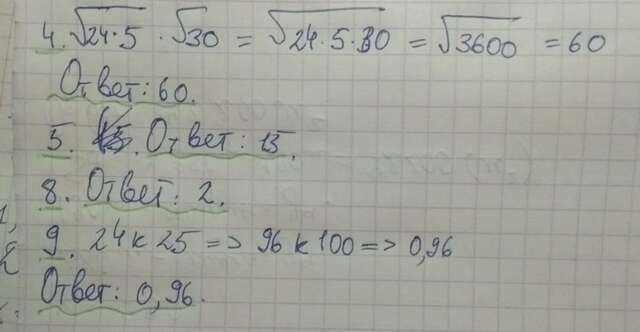 4. √24·5 · √30 = √24·5·30 = √3600 = 60
Ответ: 60.
5. Ответ: 15.
8. Ответ: 2.
9. 24 к 25 => 96 к 100 => 0,96
Ответ: 0,96.